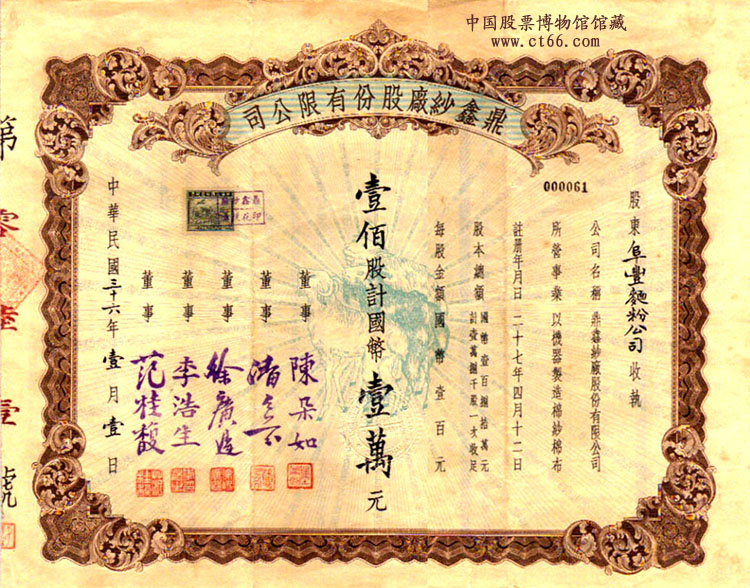 中国股票博物馆馆藏
www.ct66.com
鼎鑫紗廠股份有限公司
000061
股東 阜豐麵粉公司 收執
公司名稱 鼎鑫紗廠股份有限公司
所營事業 以機器製造棉紗棉布
註册年月日 二十七年四月十二日
股本總額 國幣壹百捌拾萬元
計壹萬捌千股一次收足
每股金額國幣壹百元
壹佰股計國幣壹萬元
董事 陳朵如
董事
董事
董事 李浩生
董事 范桂馥
中華民國三十六年壹月壹日
第零陸壹號